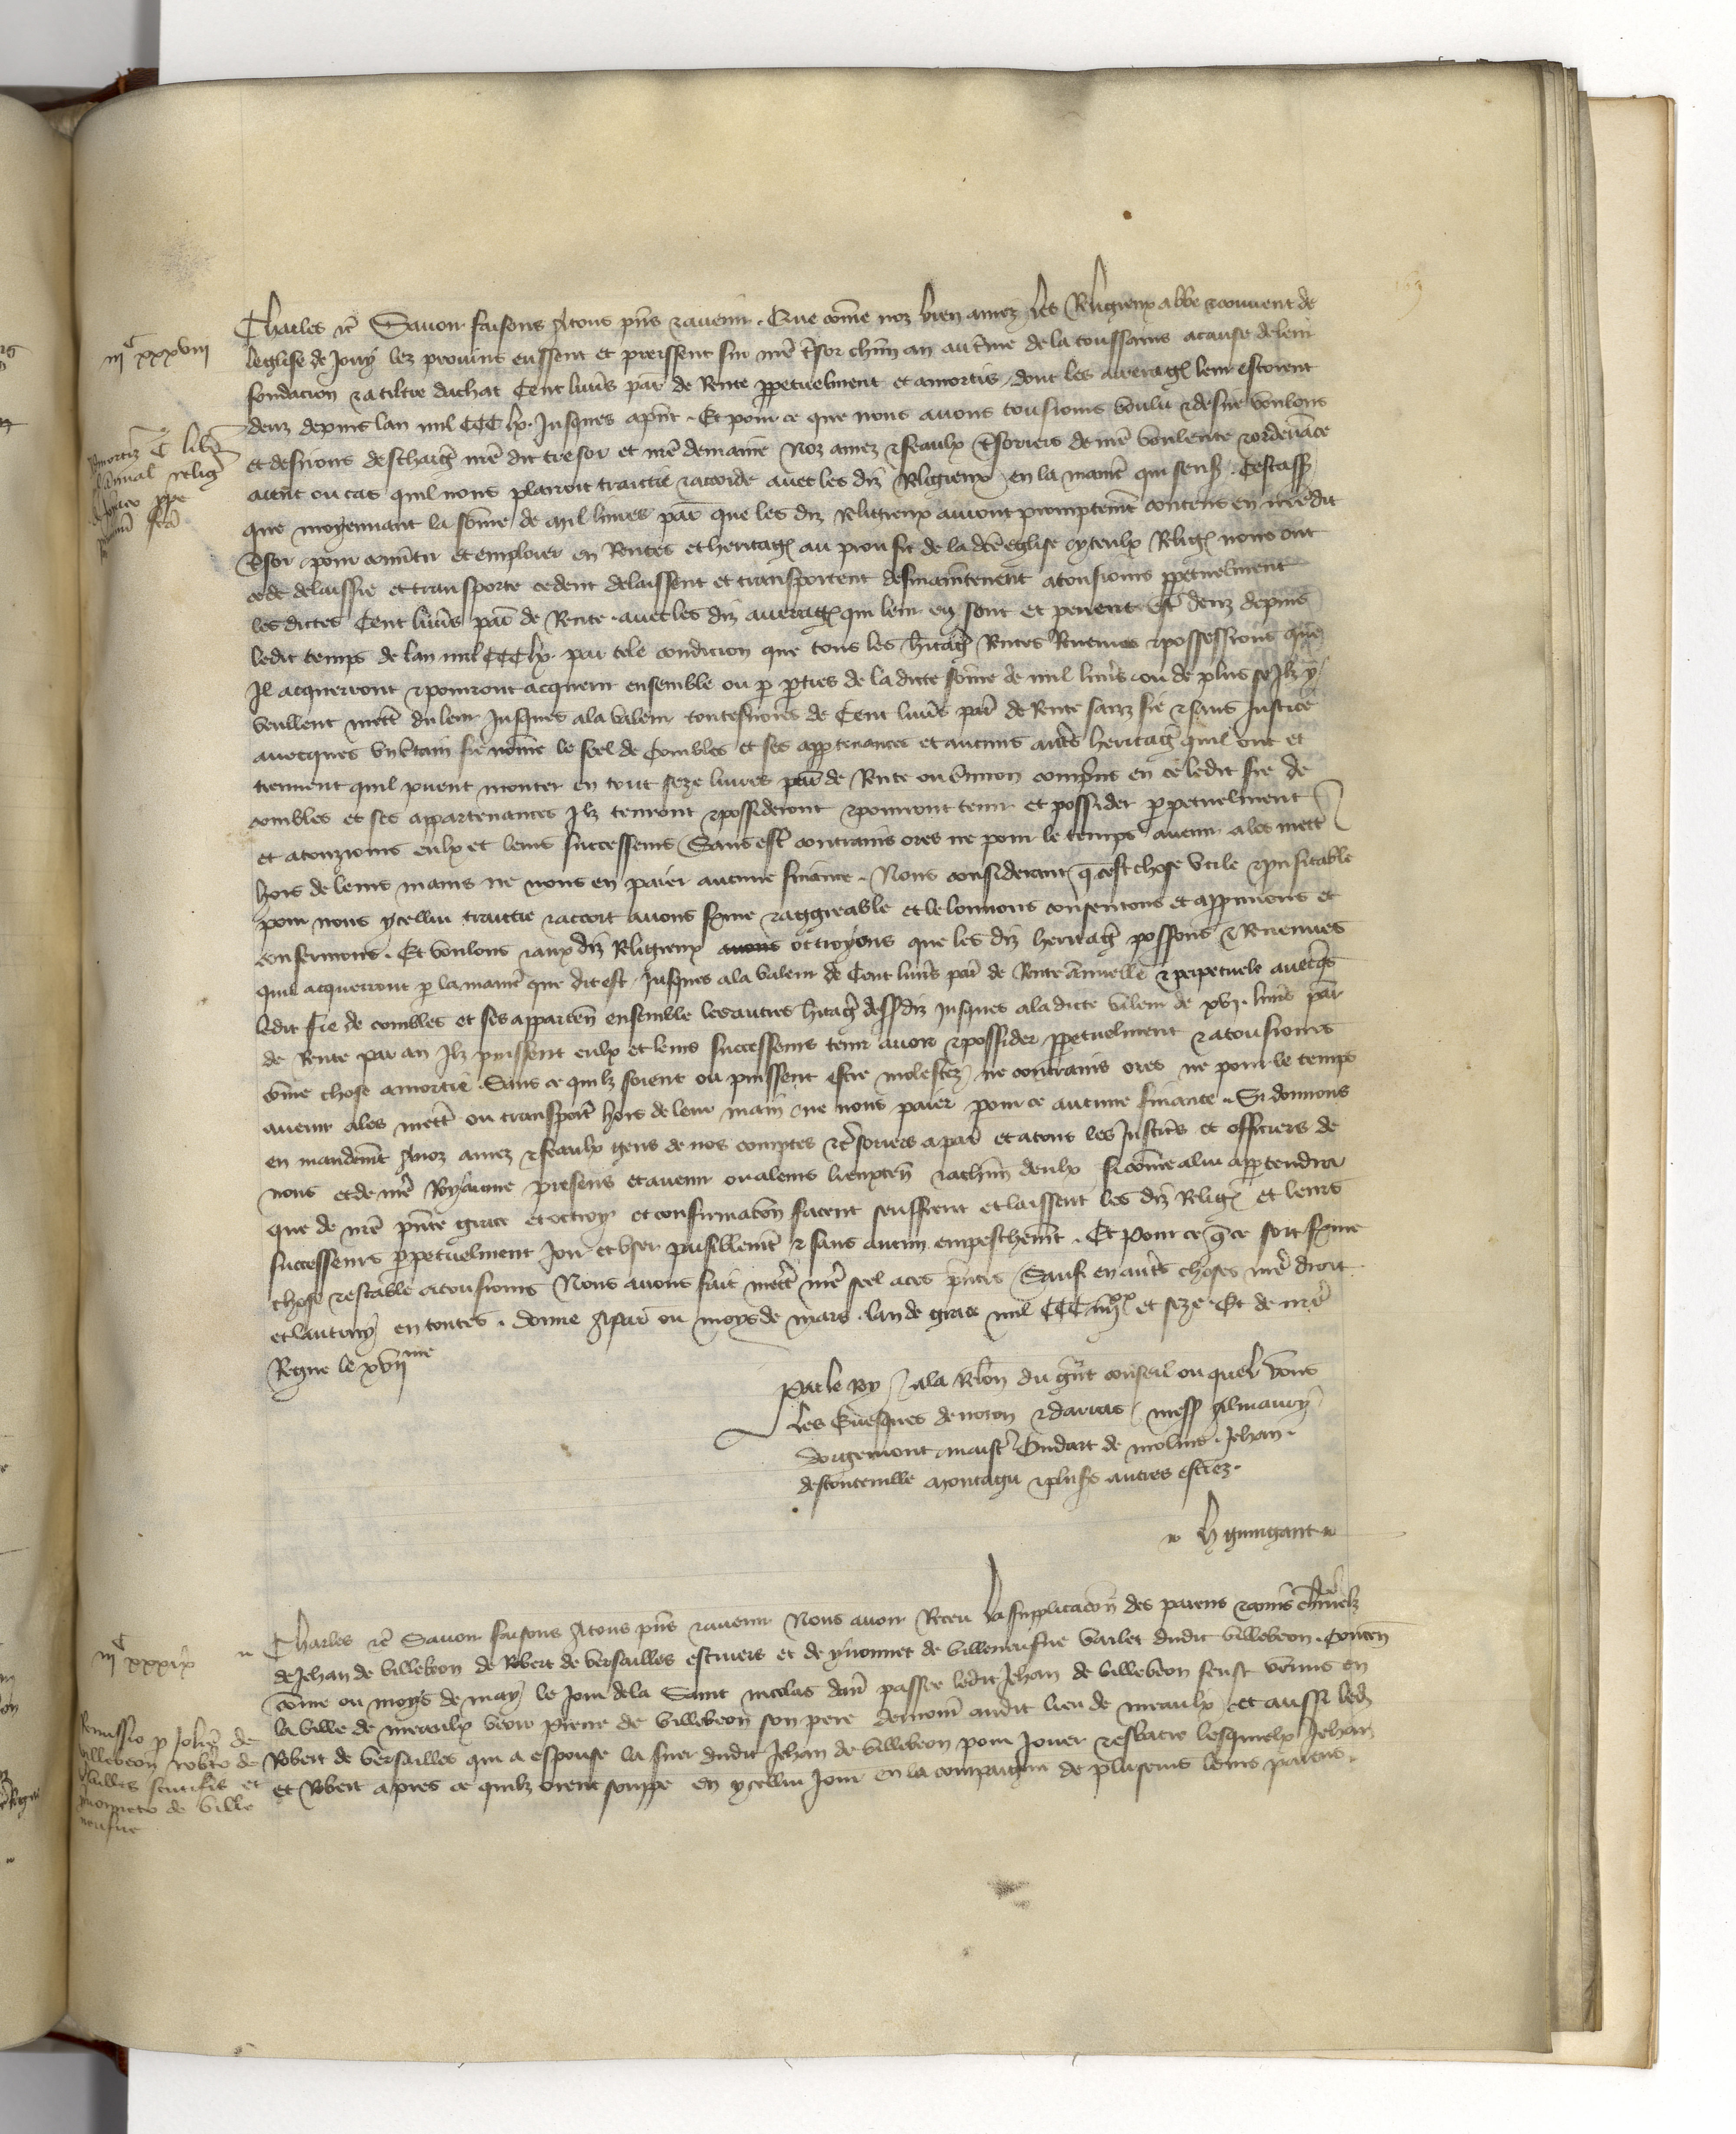 iijᶜ xxxviij
Charles etc. Savoir faisons Atous pns et avenir. Que cōme noz bien amez les Religieux abbe et couvent de
leglise de Jouy lez prouvins eussent et preissent sur nr̄e tr̄sor chūn an au tme de la toussains a cause de leur
fondacion et a tiltre dachat Cent liurēs par̄ de Rente ppetuelment et amortis, dont les arreragꝭ leur estoient
deuz depuis lan mil CCC lx. Jusques apn̄t. Et pour ce que nous avons tousiours voulu et desire voulons
et desirons deschargr̄ nr̄e dit tresor et nr̄e demaine Noz amez et feaulx tr̄soriers de nr̄e voulente et ordenāce
aient ou cas quil nous plairoit traictie et accorde avec les diz Religieux en la manr̄e qui sensꝭ. Cestass̄
que moyennant la sōme de mil livres par̄ que les diz Religieux auront promptemt̄ contens en nr̄edit
Tr̄sor, pour convt̄ir et emploier en Rentes et heritagꝭ au proufit de la dcē eglise yceulx Religꝭ nous ont
cede delaissie et transporte cedent delaissent et transportent desmaintenent a tousiours ppetuelment
les dictes Cent livrēs par̄ de Rente. avec les diz arreragꝭ qui leur en sont et peuent estr̄ deuz depuis
ledit temps de lan mil CCC lx. par tele condicion que tous les hr̄itagꝭ Rentes Revenues et possessions que
Il acquerront et pourront acquerir ensemble ou p pties de la dicte sōme de mil livrēs. ou de plus se Ilz y
veullent mettr̄ du leur Jusques a la valeur toutesuoies de Cent livrēs par̄ de Rente sanz fie et sans Justice
avecques un ctain fie nōme le feel de Combles et ses apptenances et aucuns autrēs heritagꝭ quil ont et
tiennent quil puent monter en tout seze livres par̄ de Rente ou environ compris en ce ledit fie de
combles et ses appartenances Ilz tenront et possideront et pourront tenir et possider ppetuelment
et a touziours eulx et leurs successeurs Sans estr̄ contrains ores ne pour le temps avenir a les mettr̄
hors de leurs mains ne nous en paier aucune finance. Nous considerant q̄ cest chose utile et prouffitable
pour nous ycellui traictie et accort avons ferme et aggreable et le louons consentons et approuvons et
confermons. Et voulons et aux diz Religieux avons octroyons que les diz heritagꝭ possons et Revenues
quil acquerront p la manr̄e que dit est Jusques a la valeur de Cent livrēs par̄ de Rente annuelle et perpetuele avecqs̄
ledit fie de combles et ses apparten̄ ensemble les autres hr̄itagꝭ dessꝰdiz Jusques a la dicte valeur de xvj. livrēs par̄
de Rente par an Ilz puissent eulx et leurs successeurs tenir avoir et possider ppetuelment et a tousiours
cōme chose amortie. Sans ce quilz soient ou puissent estre molestez ne contrains ores ne pour le temps
avenir a les mettr̄ ou transportr̄ hors de leur main ne nous paier pour ce aucune finance. Si donnons
en mandemt̄ A noz amez et feaulx gens de nos comptes et tr̄soriers a par̄ et a tous les Justiciēs et officiers de
nous et de nr̄e Royaume presens et avenir ou a leurs lieuxten̄ et a chūn deulx si cōme a lui apptendra
que de nr̄e pn̄te grace et octroy et confirmacōn facent seuffrent et laissent les diz Religꝭ et leurs
successeurs ppetuelment Joir et user paisiblemt̄ et sans aucun empeschemt̄. Et pour ce q̄ ce soit ferme
chose et estable a tousiours Nous avons fait mettr̄ nr̄e seel a ces pn̄tes Sauf en autrēs choses nr̄e droit
et lautruy en toutes. Donne A par̄ ou moys de mars. lan de grace mil CCC iiijˣˣ et seze. Et de nr̄e
Regne le xvijᵐᵉ
Amortiz C libr̄
Annual religꝭ
de Joyaco ppe
pruvinū scā
Par le Roy, a la Relōn du grāt conseil ou quel vous
les Evesques de noion et darras, messꝭ Almaury
dorgemont, maistr̄ Oudart de molins. Jehan.
destouteuille montagu et plusꝭ autres estiez.
H guingant
iijᶜ xxxix
Charles etc. Savoir faisons Atous pns et avenir Nous avoir Receu la supplicacōn des parens et amis charnelz
de Jehan de Villebeon de Robert de Versailles escuiers et de yvonnet de Villeneufue varlet dudit Villebeon. Conten̄
cōme ou moys de may le Jour de la Saint nicolas darr̄ passee ledit Jehan de Villebeon feust venus en
la ville de meaulx veoir pierre de Villebeon son pere demour̄ audit lieu de meaulx, et aussi led̄
Robert de Versailles qui a espouse la suer dudit Jehan de Villebeon pour Jouer et esbatre lesquelx Jehan
et Robert apres ce quilz orent souppe en ycellui Jour en la compaignie de plusieurs leurs parens
Remissio p Johen̄ de
villebeon robto de
v̄sallis scutifis et
yvonneto de ville
neufue